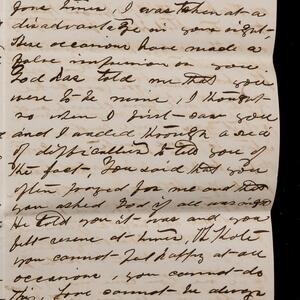 fore time, I was taken at a
disadvantage in your sight-
These occasions have made a
false impression on you.
God has told me that you
were to be mine, I thought
so when I first saw you
and I waded through a sea
of difficulties to tell you of
the fact, You said that you
often prayed for me and
you asked God if all was right
He told you it was and you
felt serene at times,
you cannot feel happy at all
occasions, you cannot do
this, Love cannot be always